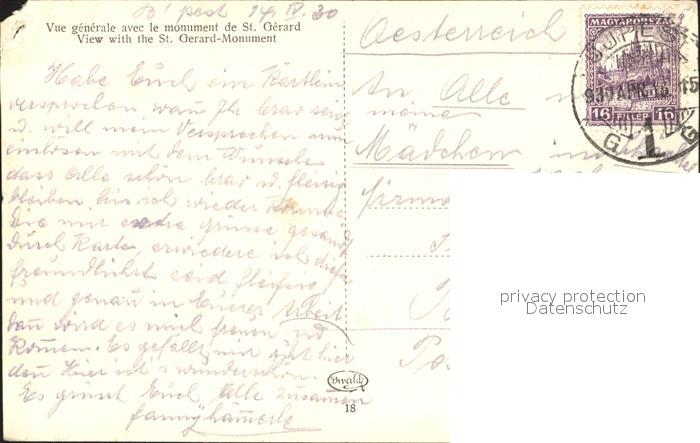 B'pest 24.IV.30
Vue générale avec le monument de St. Gérard
View with the St. Gerard-Monument
Habe Euch ein Kärtlein
versprochen, wan Ihr brav seid
u. will mein Versprechen nun
einlösen mit dem Wunsche
dass Alle schön brav u. fleisig
bleiben bis ich wieder komme
Die mir extra grüsse gesandt
durch Karte, erwiedere ich diese
freundlichst seid fleisig
und genau in Eurer Arbeit
dan wird es mich freuen
Komen. Es gefällt mir gut hier
den Hier ist's wunderschön.
Es grüsst Euch Alle zusamen
Fanny Hämerle
Oesterreich
An Alle
meine
Mädchen
Firma
MAGYARORSZÁG
16 FILLÉR 16
UJPEST
930 APR. 15
1
Divald
18
privacy protection
Datenschutz